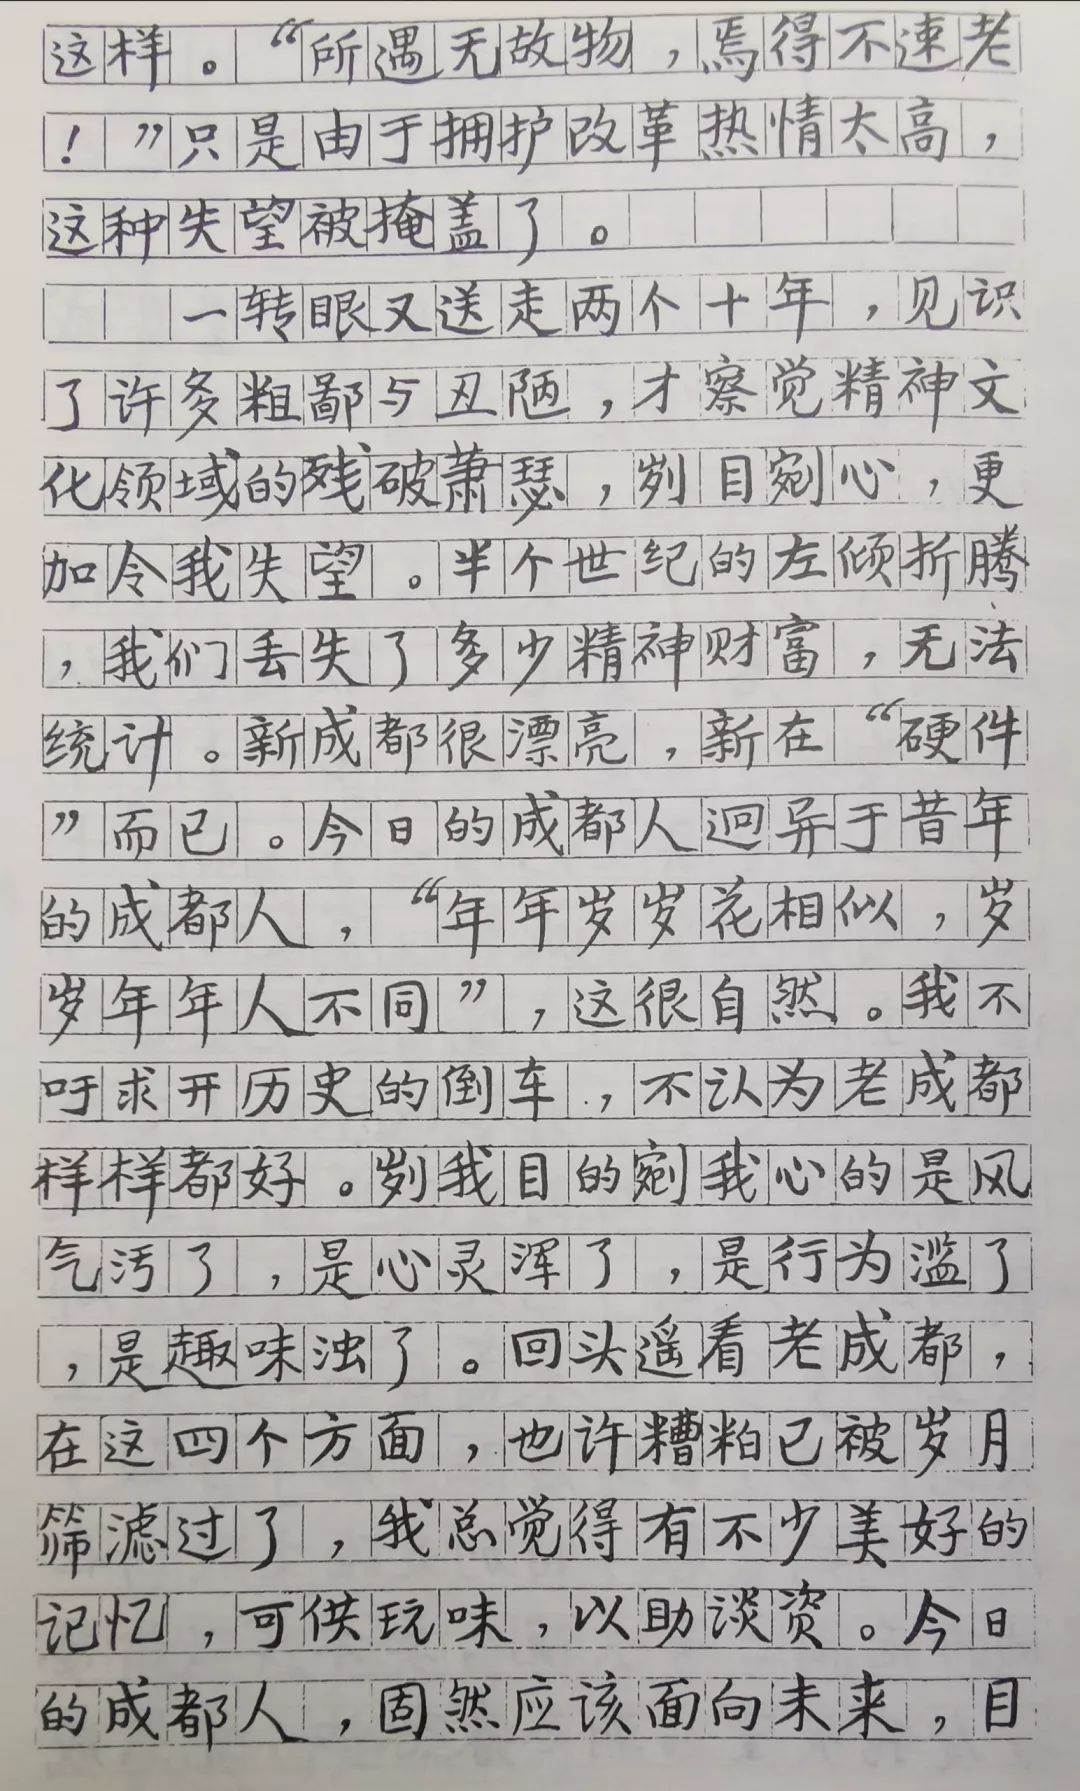 这样。“所遇无故物，焉得不速老
！”只是由于拥护改革热情太高，
这种失望被掩盖了。
一转眼又送走两个十年，见识
了许多粗鄙与丑陋，才察觉精神文
化领域的残破萧瑟，刿目剜心，更
加令我失望。半个世纪的左倾折腾
，我们丢失了多少精神财富，无法
统计。新成都很漂亮，新在“硬件
”而已。今日的成都人迥异于昔年
的成都人，“年年岁岁花相似，岁
岁年年人不同”，这很自然。我不
吁求开历史的倒车，不认为老成都
样样都好。刿我目的剜我心的是风
气污了，是心灵浑了，是行为滥了
，是趣味浊了。回头遥看老成都，
在这四个方面，也许糟粕已被岁月
筛滤过了，我总觉得有不少美好的
记忆，可供玩味，以助谈资。今日
的成都人，固然应该面向未来，目